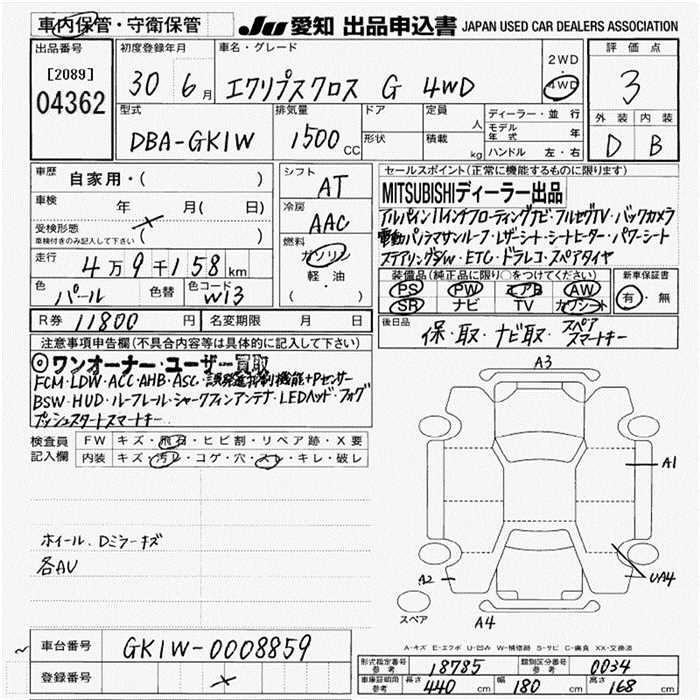 車内保管・守衛保管
JU 愛知 出品申込書 JAPAN USED CAR DEALERS ASSOCIATION
出品番号
[2089]
04362
初度登録年月
30 6月
車名・グレード
エクリプスクロス G 4WD
2WD
・
4WD
評価点
3
外装 内装
D B
型式
DBA-GK1W
排気量
1500 CC
ドア
形状
定員 人
積載 kg
ディーラー・並行
モデル年式 年
ハンドル 左・右
車歴
自家用・( )
車検 年 月( 日)
受検形態
車検付きのみ記入して下さい ( )
走行 4万9千158km
色 パール 色替 色コード W13
シフト AT
冷房 AAC
燃料
ガソリン
軽・油
( )
セールスポイント(正常に機能するものに限ります)
MITSUBISHIディーラー出品
アルパイン11インチフローティングナビ・フルセグTV・バックカメラ
電動パノラマサンルーフ・レザーシート・シートヒーター・パワーシート
ステアリングSW・ETC・ドラレコ・スペアタイヤ
装備品(純正品に限り○をつけてください)
PS PW エアB AW
SR ナビ TV カワシート
新車保証書
有・無
R券 11800円 名変期限 月 日
後日品
保・取・ナビ取・スペアスマートキー
注意事項申告欄(不具合内容等は具体的に記入して下さい)
◎ワンオーナー・ユーザー買取
FCM・LDW・ACC・AHB・ASC・誤発進抑制機能+Pセンサー
BSW・HUD・ルーフレール・シャークフィンアンテナ・LEDヘッド・フォグ
プッシュスタートスマートキー
検査員記入欄
FW キズ・飛石・ヒビ割・リペア跡・X要
内装 キズ・汚レ・コゲ・穴・スレ・キレ・破レ
ホイール、Dミラーキズ
各AU
A3
A1
A2
UA4
スペア
A4
A-キズ E-エクボ U-凹み W-補修跡 S-サビ C-腐食 XX-交換済
車台番号 GK1W-0008859
登録番号
形式指定番号 参考 18785 類別区分番号 参考 0034
車庫証明用 参考 長さ 440 cm 幅 180 cm 高さ 168 cm